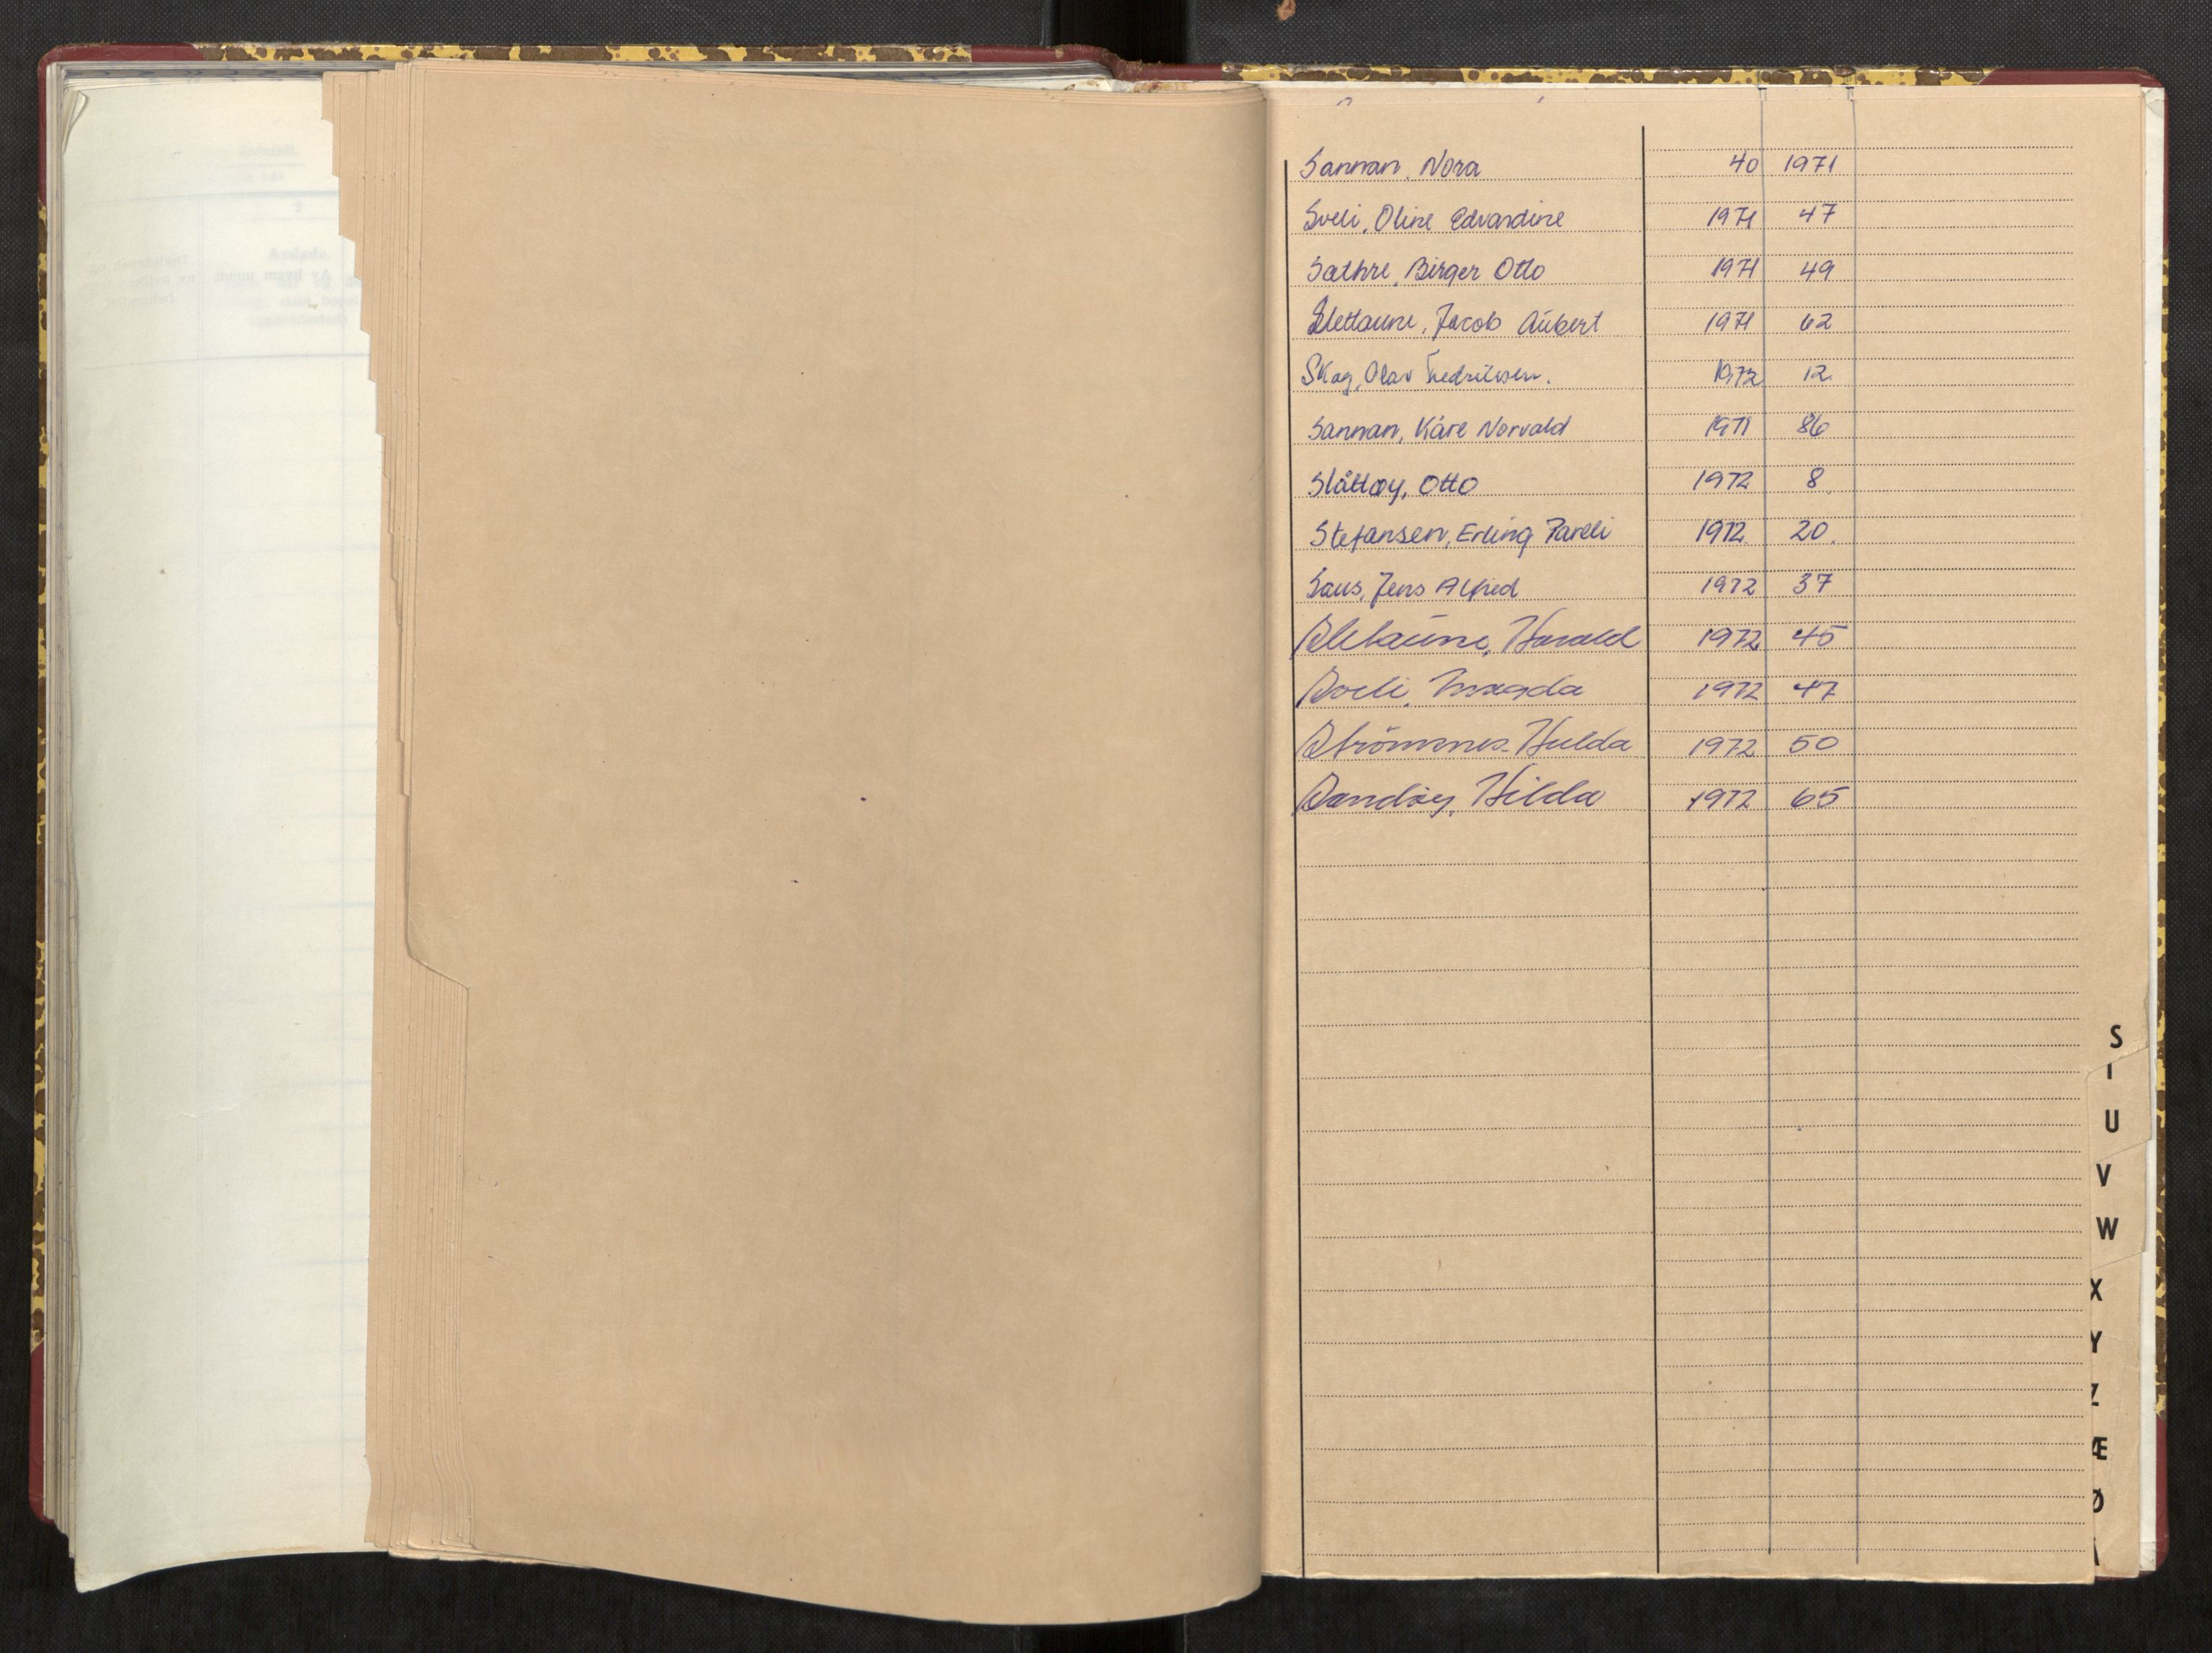 Sannan, Nora 40 1971
Sveli, Oline Edvardine 1971 47
Sæthre, Birger Otto 1971 49
Slettaune, Jacob Aubert 1971 62
Skag, Olav Fredriksen. 1972 12
Sannan, Kåre Norvald 1971 86
Slåttøy, Otto 1972 8
Stefansen, Erling Pareli 1972 20.
Saus, Jens Alfred 1972 37
Slettaune, Harald 1972 45
Sveli, Magda 1972 47
Strömmes Hulda 1972 50
Sandøy, Hilda 1972 65
S
U
V
W
X
Y
Z
Æ
Ø